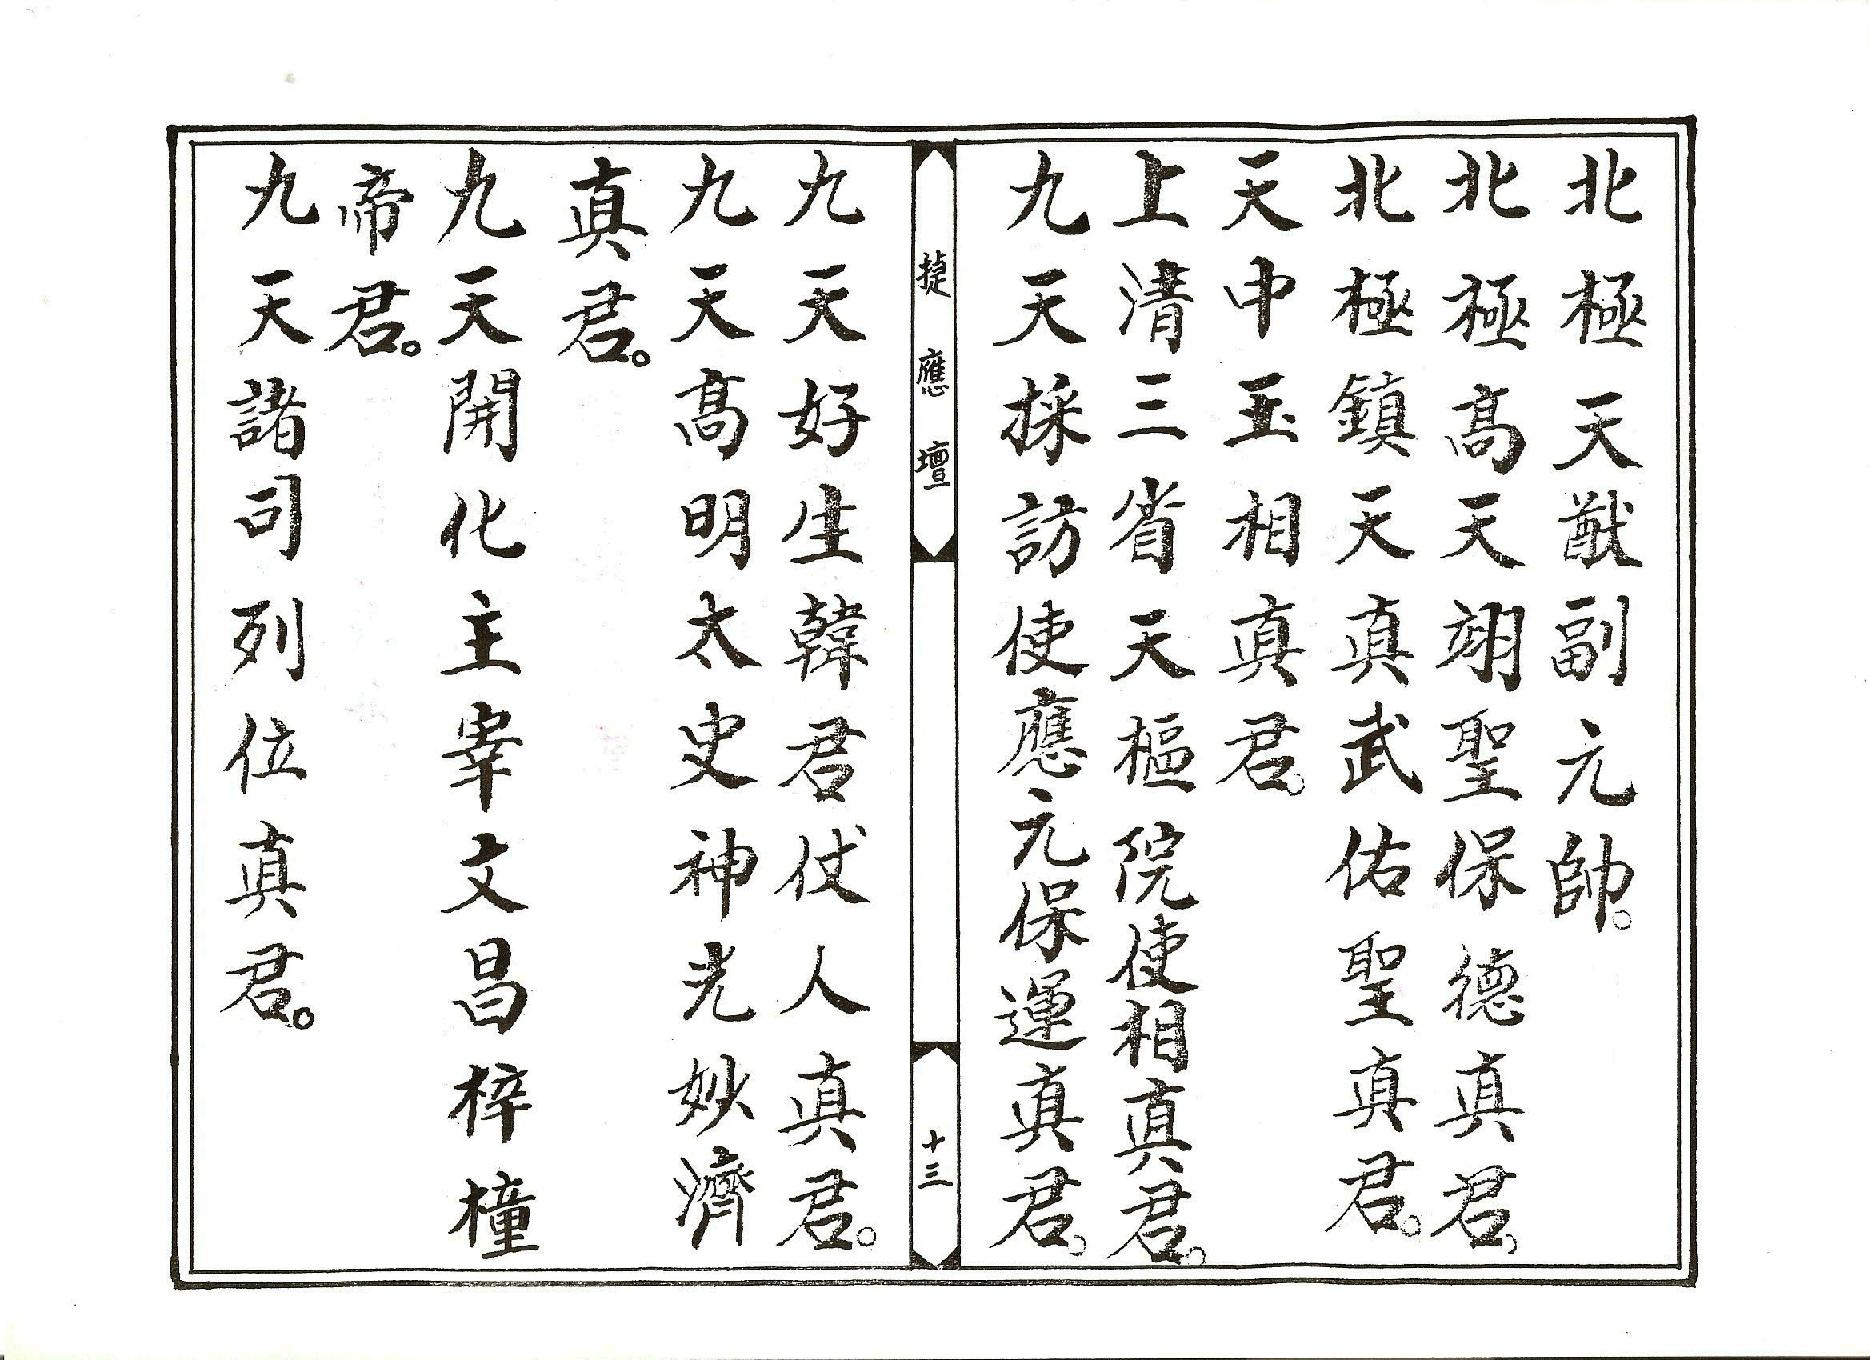 北極天猷副元帥。
北極高天翊聖保德真君。
北極鎮天真武佑聖真君。
天中玉相真君。
上清三省天樞院使相真君。
九天採訪使應元保運真君。
捷應壇
十三
九天好生韓君伏人真君。
九天高明太史神光妙濟
真君。
九天開化主宰文昌梓橦
帝君。
九天諸司列位真君。